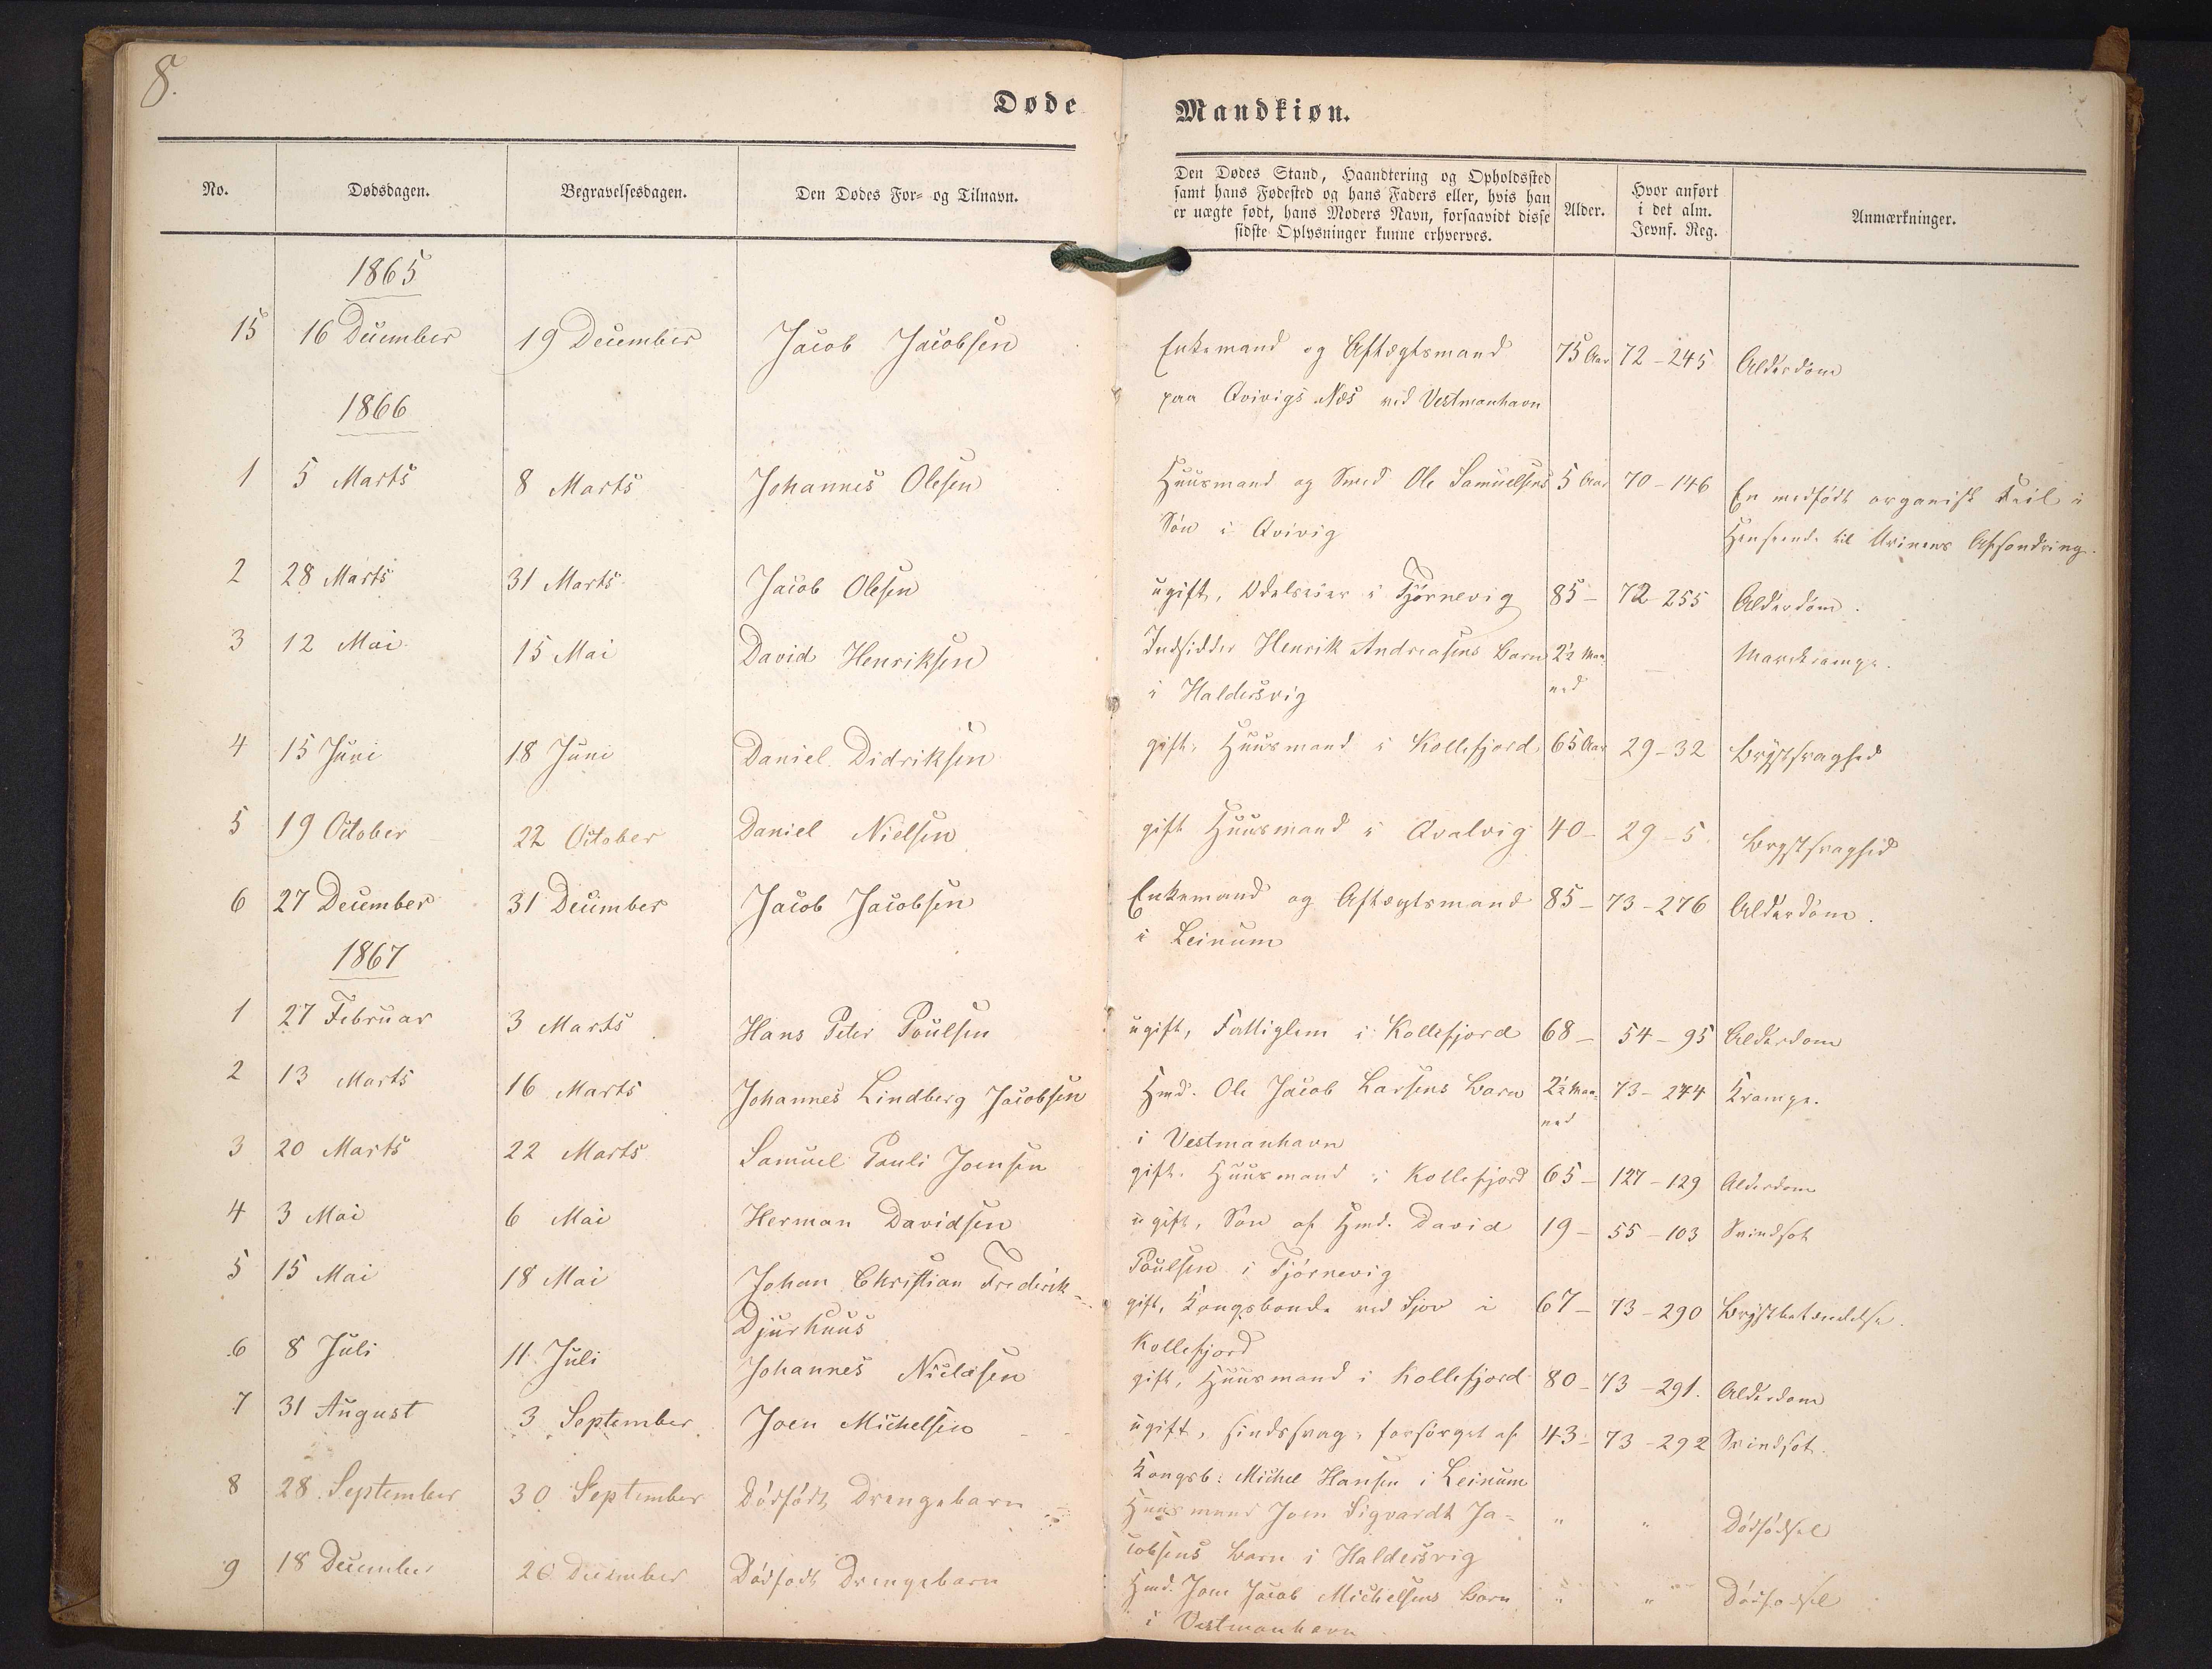 8.
Døde
Mandkiøn.
No.
Dødsdagen.
Begravelsesdagen.
Den Dødes For- og Tilnavn.
Den Dødes Stand, Haandtering og Opholdssted
samt hans Fødested og hans Faders eller, hvis han
er uægte født, hans Moders Navn, forsaavidt disse
sidste Oplysninger kunne erhverves.
Alder.
Hvor anført
i det alm.
Jevnf. Reg.
Anmærkninger.
1865
15 16 December 19 December Jacob Jacobsen Enkemand og Aftægtsmand 75 Aar 72-245 Alderdom
paa Qvivigs Næs ved Vestmanhavn
1866
1 5 Marts 8 Marts Johannes Olesen Huusmand og Smed Ole Samuelsens 5 Aar 70-146 En medfødt organisk Feil i
Søn i Qvivig Henseende til Urinens Afsondring.
2 28 Marts 31 Marts Jacob Olesen ugift, Odelseier i Tjørnevig 85- 72-255 Alderdom.
3 12 Mai 15 Mai David Henriksen Indsidder Henrik Andreasens Barn 2½ Maa- –
i Haldersvig ned
4 15 Juni 18 Juni Daniel Didriksen gift, Huusmand i Kollefjord 65 Aar 29-32 Brystsvaghed
5 19 October 22 October Daniel Nielsen gift Huusmand i Qvalvig 40- 29-5. Brystsvaghed
6 27 December 31 December Jacob Jacobsen Enkemand og Aftægtsmand 85- 73-276 Alderdom.
i Leinum
1867
1 27 Februar 3 Marts Hans Peter Poulsen ugift, Fattiglem i Kollefjord 68- 54-95 Alderdom
2 13 Marts 16 Marts Johannes Lindberg Jacobsen Hmd. Ole Jacob Larsens Barn 2½ Maa- 73-274 Krampe.
i Vestmanhavn ned
3 20 Marts 22 Marts Samuel Pauli Joensen gift. Huusmand i Kollefjord 65- 127-129 Alderdom
4 3 Mai 6 Mai Herman Davidsen ugift, Søn af Hmd. David 19- 55-103 Svindsot
Poulsen i Tjørnevig
5 15 Mai 18 Mai Johan Christian Frederik gift, Kongsbonde ved Sjov i 67- 73-290 Brystbetændelse.
Djurhuus Kollefjord
6 8 Juli 11 Juli Johannes Niclasen gift, Huusmand i Kollefjord 80- 73-291. Alderdom
7 31 August 3 September Joen Michelsen ugift, sindssvag, forsørget af 43- 73-292 Svindsot.
Kongsb: Michel Hansen i Leinum
8 28 September 30 September Dødfødt Drengebarn Huusmand Joen Sigvardt Ja- " " Dødfødsel
cobsens Barn i Haldersvig
9 18 December 20 December Dødfødt Drengebarn Hmd. Joen Jacob Michelsens Barn " " Dødfødsel
i Vestmanhavn